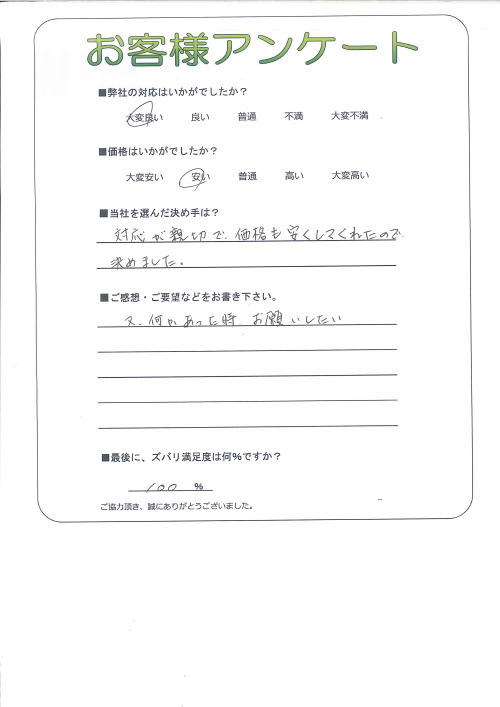 お客様アンケート
■弊社の対応はいかがでしたか？
大変良い 良い 普通 不満 大変不満
■価格はいかがでしたか？
大変安い 安い 普通 高い 大変高い
■当社を選んだ決め手は？
対応が親切で、価格も安くしてくれたので
決めました。
■ご感想・ご要望などをお書き下さい。
又、何かあった時、お願いしたい
■最後に、ズバリ満足度は何％ですか？
100 ％
ご協力頂き、誠にありがとうございました。